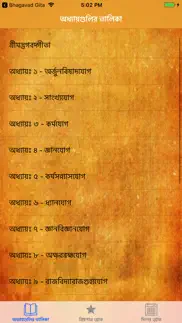 Bhagavad Gita
5:02 PM
অধ্যায়গুলির তালিকা
শ্রীমদ্ভগবদ্গীতা
অধ্যায়ঃ ১ - অর্জুনবিষাদযোগ
অধ্যায়ঃ ২ - সাংখ্যযোগ
অধ্যায়ঃ ৩ - কর্মযোগ
অধ্যায়ঃ ৪ - জ্ঞানযোগ
অধ্যায়ঃ ৫ - কর্মসন্ন্যাসযোগ
অধ্যায়ঃ ৬ - ধ্যানযোগ
অধ্যায়ঃ ৭ - জ্ঞানবিজ্ঞানযোগ
অধ্যায়ঃ ৮ - অক্ষরব্রহ্মযোগ
অধ্যায়ঃ ৯ - রাজবিদ্যারাজগুহ্যযোগ
অধ্যায়গুলির তালিকা